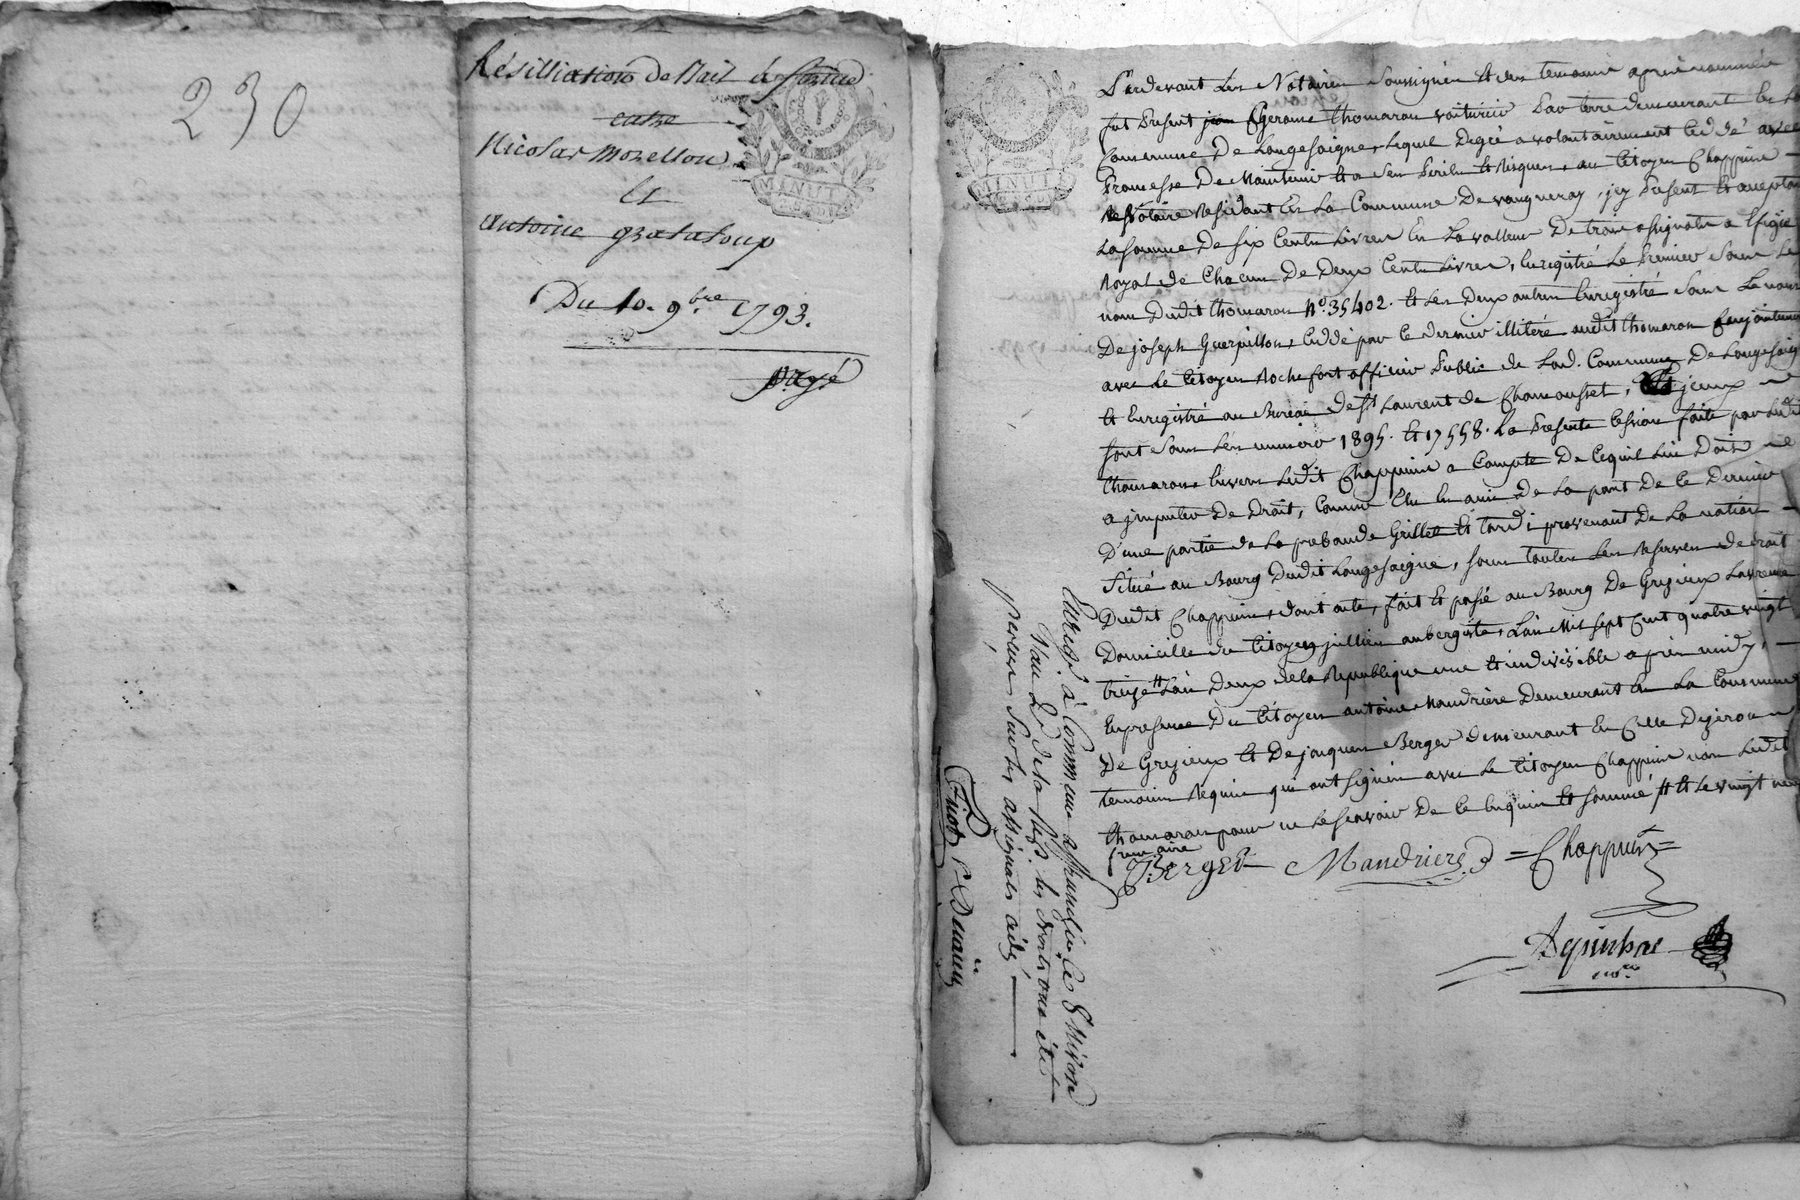 230
Résilliation de Bail à ferme
entre
Nicolas Morellon
Et
Antoine grataloup
Du 10. 9.bre 1793.
payé
MINUT
MINUT
Pardevant Les Notaires Soussignés Et les temoins après nommés
fut Present gerome thomaron voiturier Par terre demeurant En la
Commune De Longesaigne, Lequel De gré a volontairement Ceddé avec
Promesse De Maintenir Et a Ses Perils Et Risques, au Citoyen Chappuis
Notaire Residant En La Commune De vaugneray, jcy Present Et acceptant
La Somme De Six Cents Livres En La valleur De trois assignats a Efigie
Royal de Chacun De Deux Cents Livres, Enregistré Le Premier Sous Le
nom Dudit thomaron N.º 35402. Et Les Deux autres Enregistré Sous Le nom
De joseph Guerpillon, Ceddé par Ce dernier illiteré audit thomaron Conjointement
avec Le Citoyen Rochefort officier Public de Lad. Commune De Longesaigne
Et Enregistré au Bureau de St Laurent de Chamousset, jceux
Sont Sous Les numero 1895. Et 17558. La Presente Cession faite par Ledit
thomaron Envers Ledit Chappuis a Compte De Cequil Lui Doit
a jmputer De Droit, Comme Elu En amis De La part De Ce Dernier
D'une partie de La prebande Grillet Et tardi provenant De La nation
Situé au Bourg Dudit Longesaigne, Sous toutes Les Reserves de droit
Dudit Chappuis, dont acte, fait Et passé au Bourg De Grezieux Lavarenne
Domicille du Citoyen jullien aubergiste, L'an Mil Sept Cent quatre vingt
treize # L'an Deux de la Republique une Et indivisible après midy,
En presence Du Citoyen antoine Mandriere Demeurant En La Commune
De Grezieux Et De jacques Berger demeurant En Celle
temoins Requis qui ont Signés avec Le Citoyen Chappuis non Ledit
thomaron pour ne Le Scavoir De Ce Enquis Et Sommé # Et Le vingt neuf
Berger Mandriere = Chappuis =
Enregé à Commune affranchie le 8 Nivose
L'an 2e de la Repe. les droits ont été
perçus sur les assignats cédés